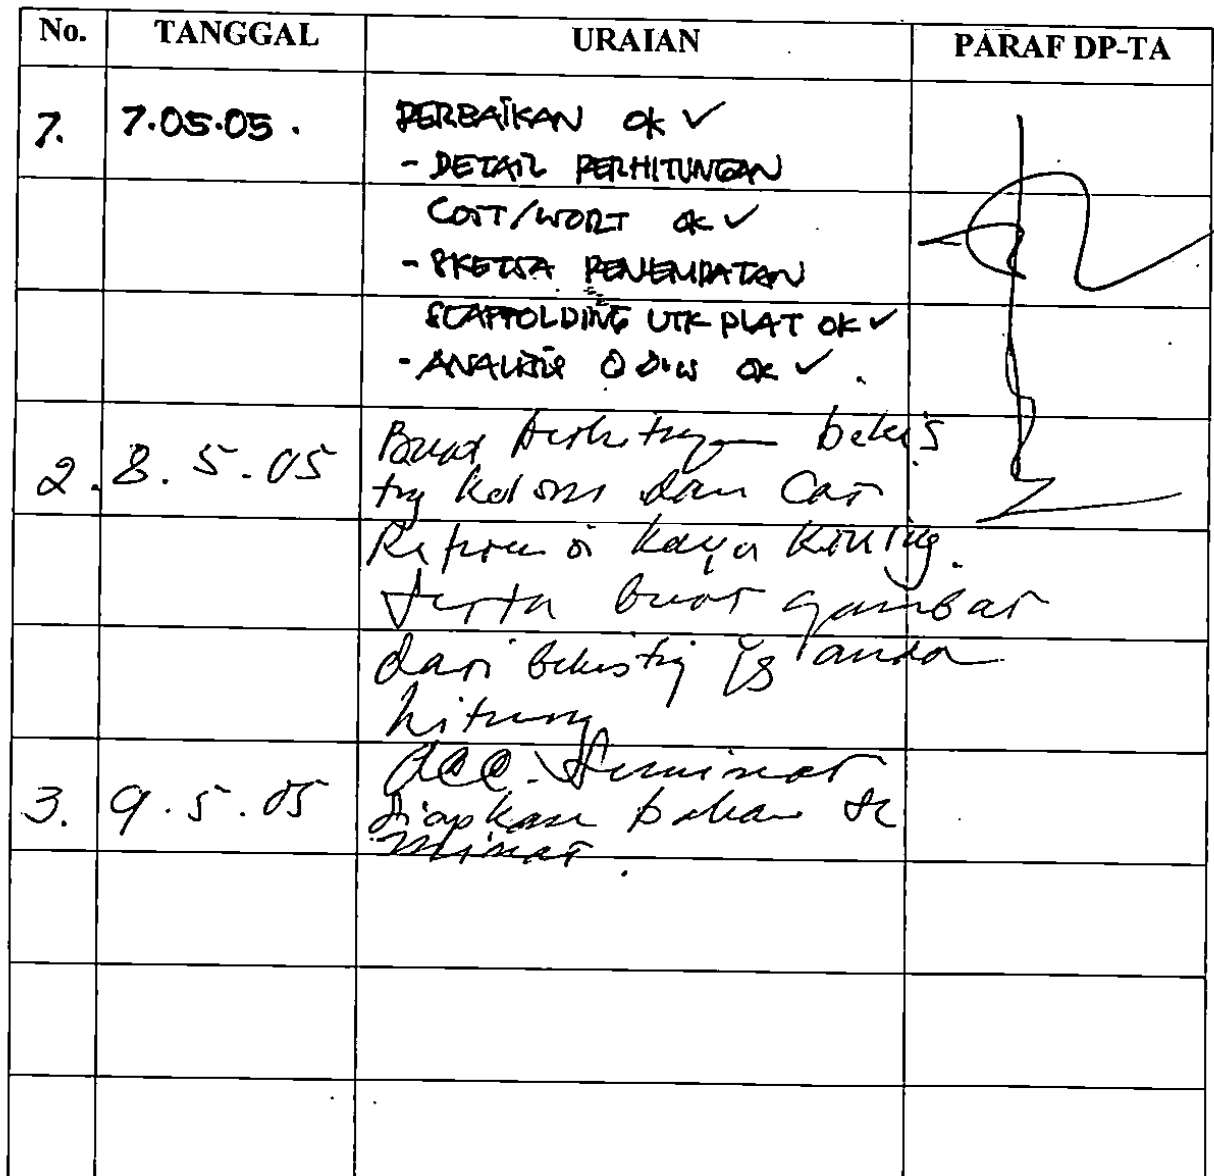 No. TANGGAL URAIAN PARAF DP-TA
7. 7.05.05. PERBAIKAN OK ✓
- DETAIL PERHITUNGAN
COST/WORT OK ✓
- SKETSA PENEMPATAN
SCAFFOLDING UTK PLAT OK ✓
- ANALISIS OK ✓
2. 8.5.05 Buat bekis
ting kolom dan
kayu
serta buat gambar
dari bekisting yg anda
hitung
3. 9.5.05 acc. Seminar
siapkan bahan se
minar.